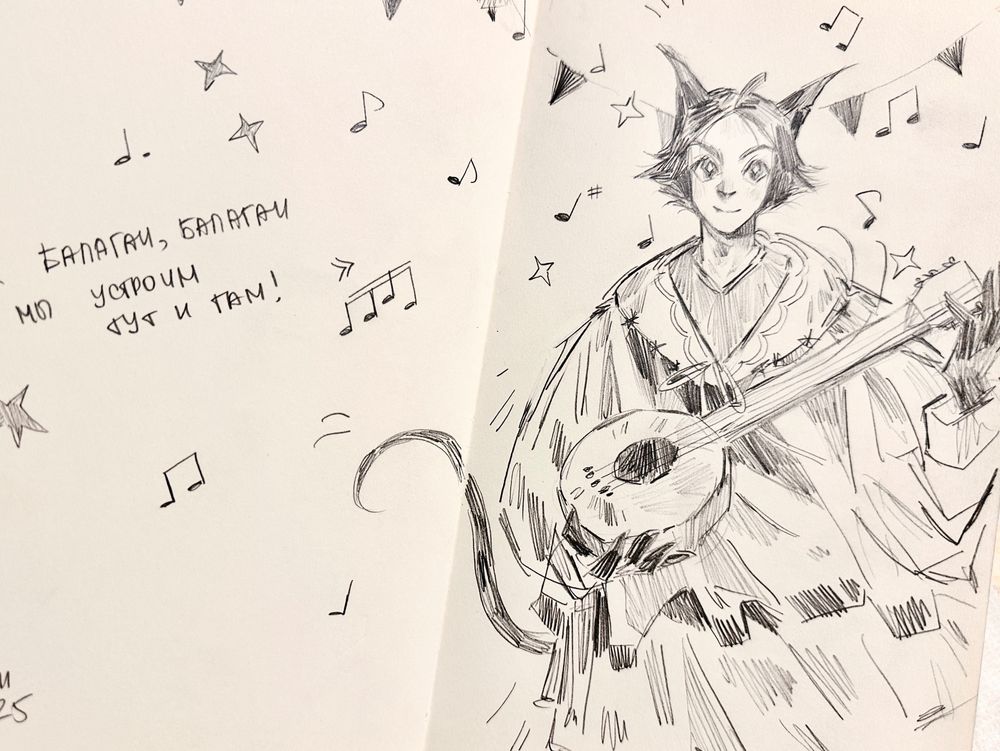 БАЛАГАН, БАЛАГАН
МЫ УСТРОИМ
ТУТ И ТАМ!
25